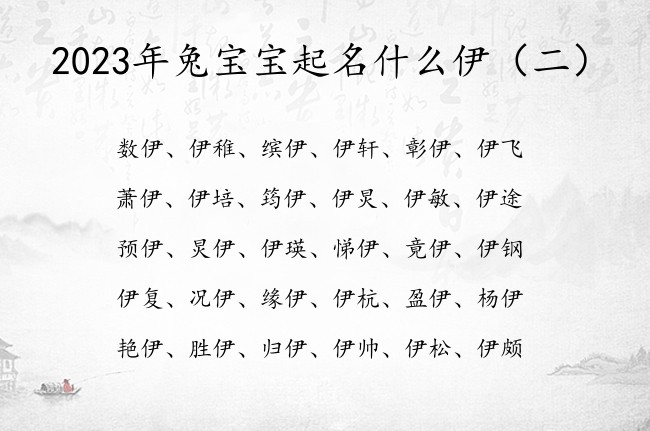 2023年兔宝宝起名什么伊（二）
数伊、伊稚、缤伊、伊轩、彰伊、伊飞
萧伊、伊培、筠伊、伊炅、伊敏、伊途
预伊、炅伊、伊瑛、悌伊、竟伊、伊钢
伊复、况伊、缘伊、伊杭、盈伊、杨伊
艳伊、胜伊、归伊、伊帅、伊松、伊颇